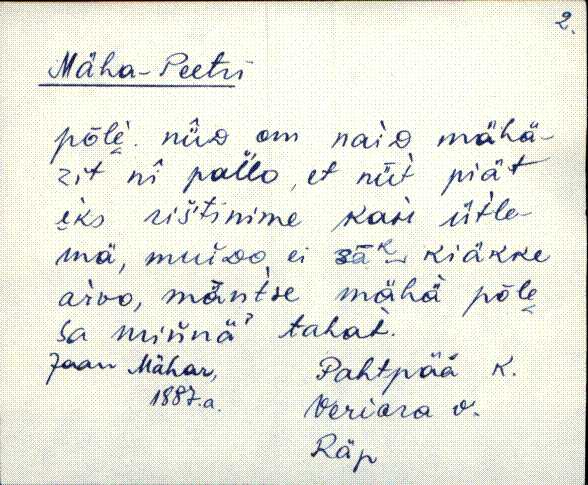 2.
Mäha-Peetri
põlè. nûD om naiD mähä-
zit nî pal̆lo, et nüt́ piät
eks rišt́inime kaŕi üt́le-
mä, muiDo, ei sāᴷ kiäkke
arvo, mänt́se mähä põle
sa miñnäʾ tahat.
Jaan Mähar,
1887.a.
Pahtpää k.
Veriora v.
Räp